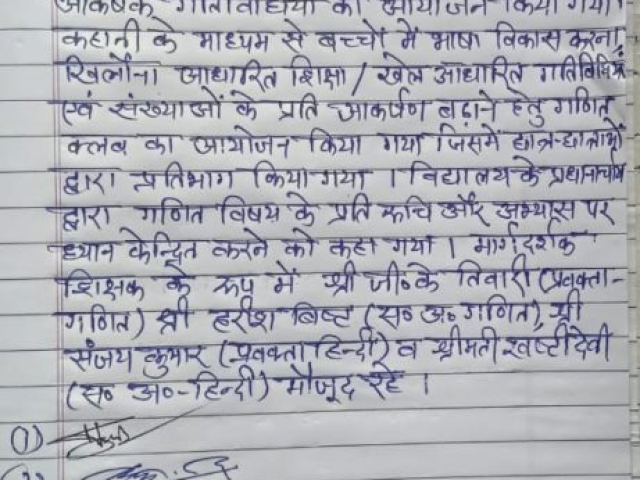 आकर्षक गतिविधियों का आयोजन किया गया।
कहानी के माध्यम से बच्चों में भाषा विकास करना,
खिलौना आधारित शिक्षा / खेल आधारित गतिविधियों
एवं संख्याओं के प्रति आकर्षण बढ़ाने हेतु गणित
क्लब का आयोजन किया गया जिसमें छात्र-छात्राओं
द्वारा प्रतिभाग किया गया । विद्यालय के प्रधानाचार्य
द्वारा गणित विषय के प्रति रूचि और अभ्यास पर
ध्यान केन्द्रित करने को कहा गया । मार्गदर्शक
शिक्षक के रूप में श्री जी० के तिवारी (प्रवक्ता-
गणित) श्री हरीश बिष्ट (स० अ० गणित), श्री
संजय कुमार (प्रवक्ता हिन्दी) व श्रीमती षष्टी देवी
(स० अ०-हिन्दी) मौजूद रहे ।
(1)